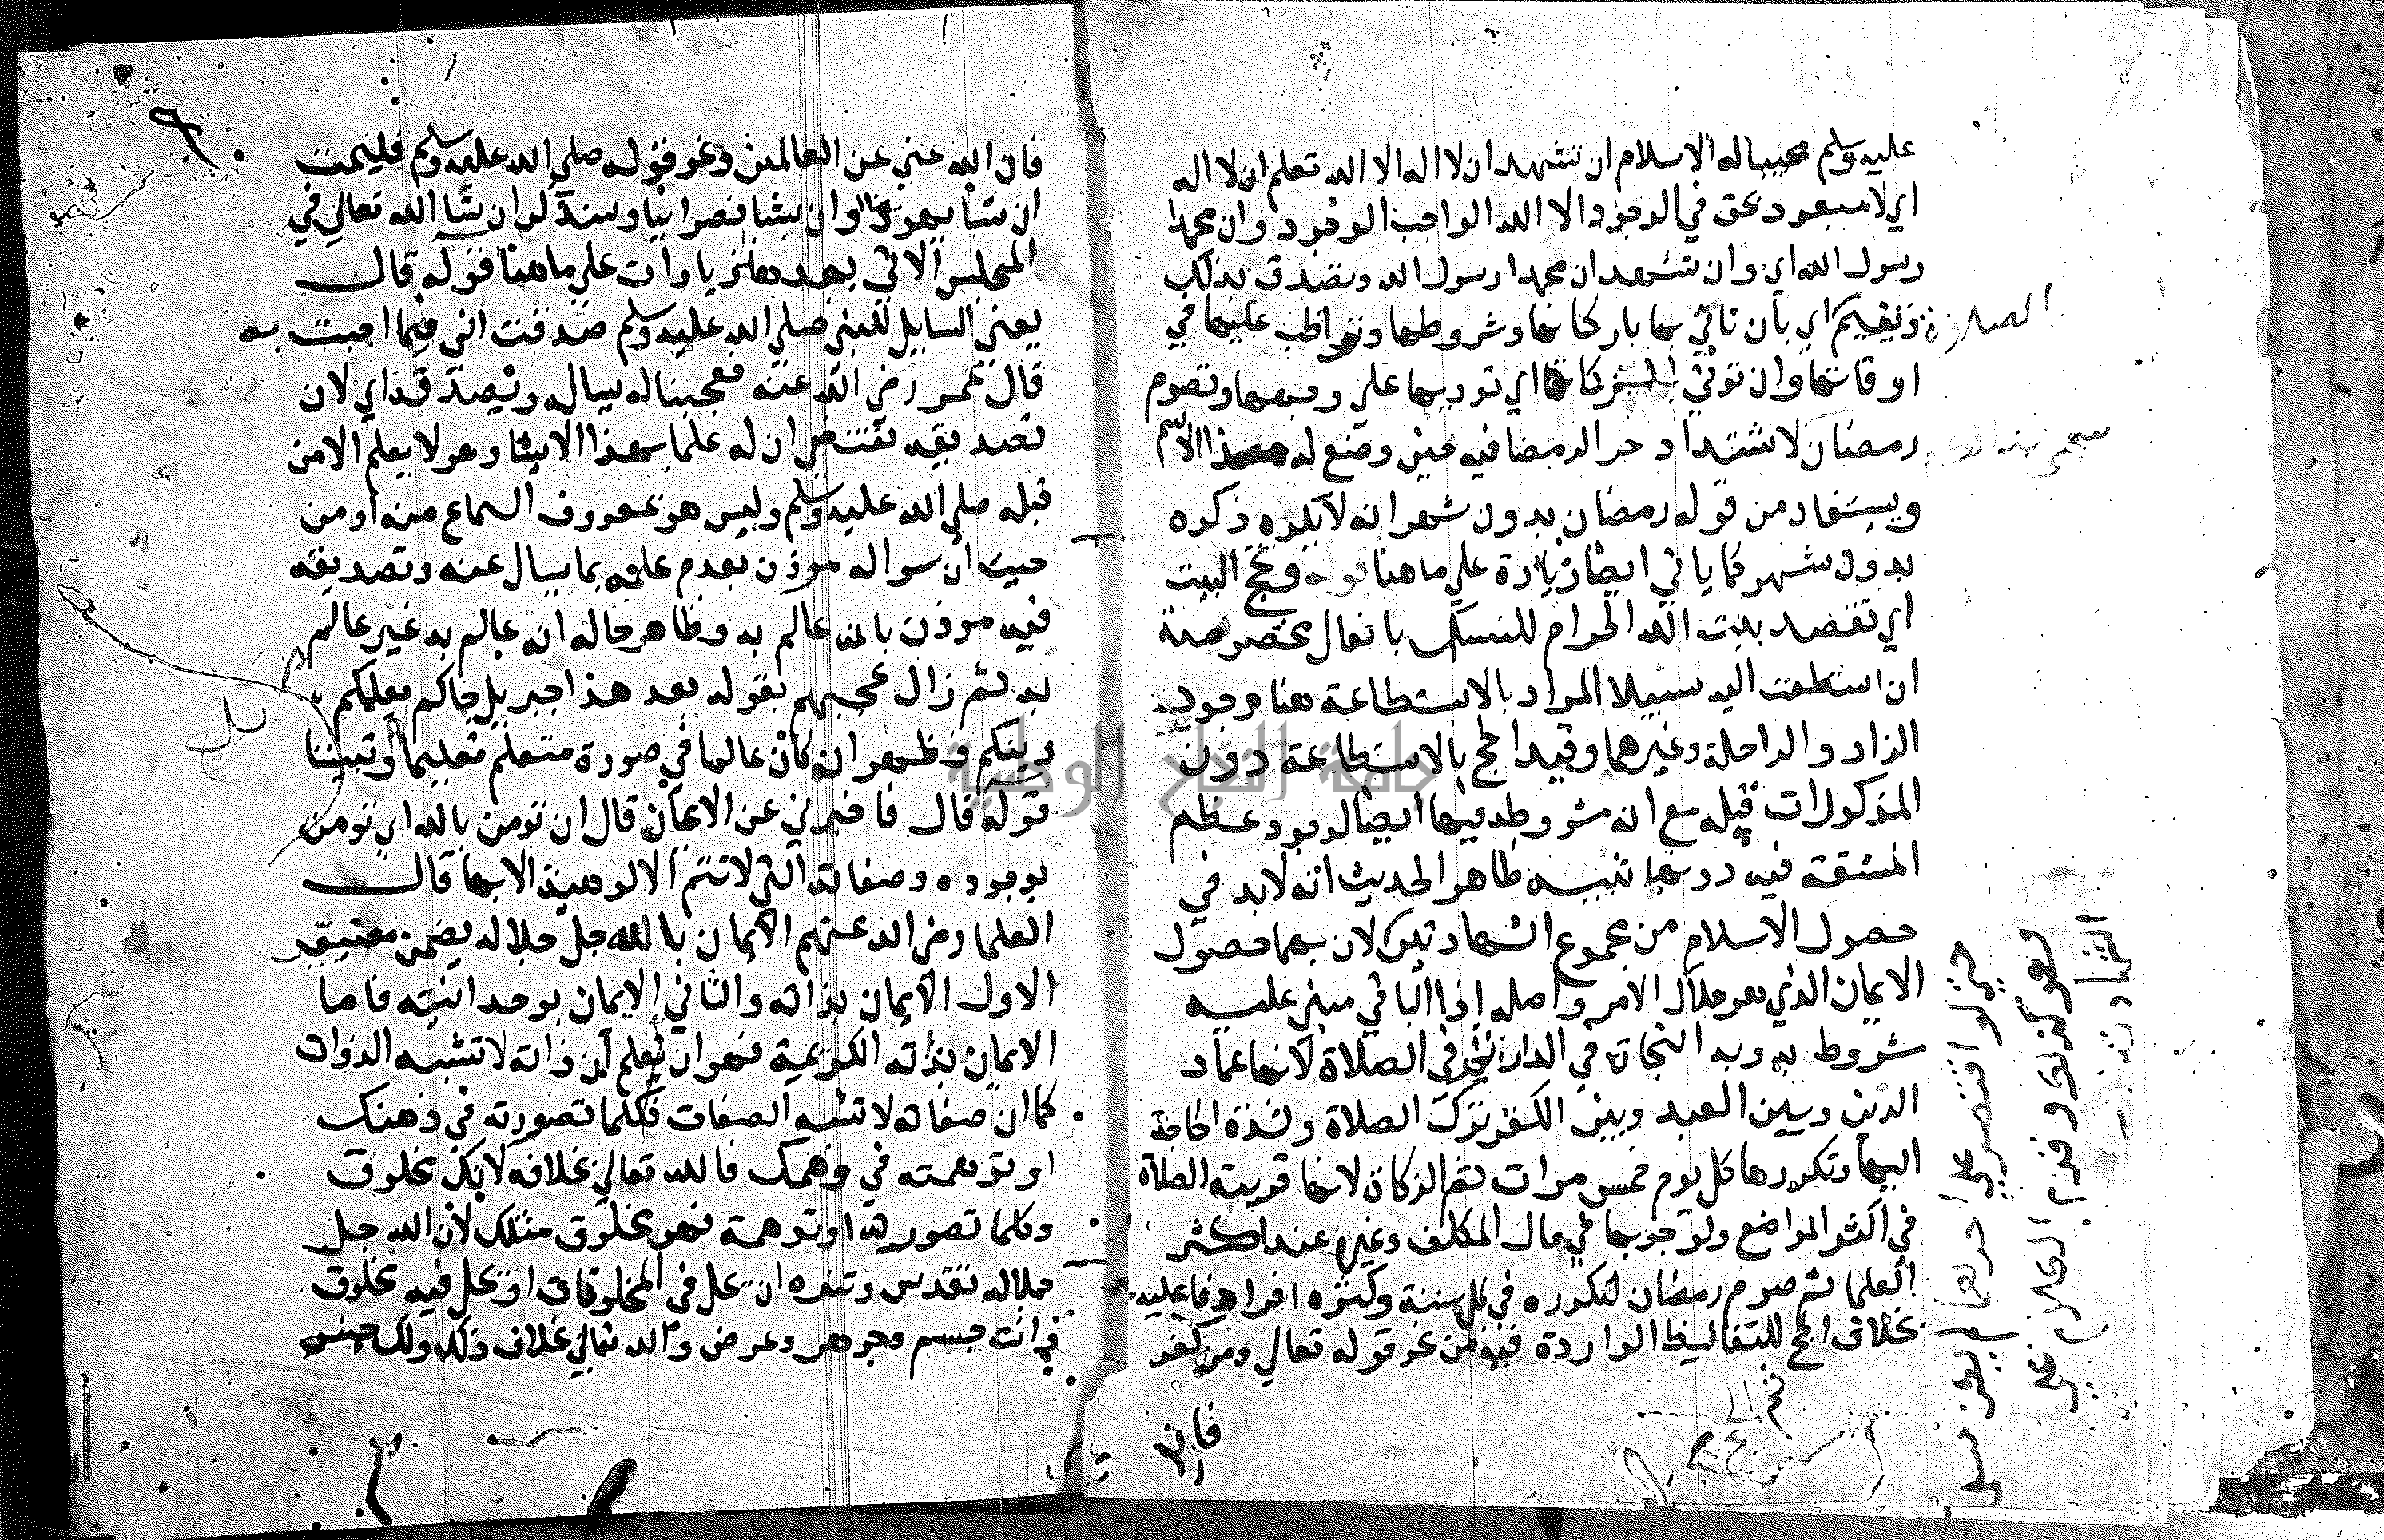 عليه وسلم مجيبا له الاسلام ان تشهد ان لا اله الا الله تعلم ان لا اله
اي لا معبود بحق في الوجود الا الله الواجب الوجود وان محمدا
رسول الله اي وان تشهد ان محمدا رسول الله وتصدق بذلك
وتقيم اي بان تاتي بها باركانها وشروطها وتواظب عليها في
الصلاة
اوقاتها وان توتي الزكاة اي توديها علي وجهها وتصوم
رمضان لاشتداد حر الرمضا فيه حين وضع له هذا الاسم
ويستفاد من قوله رمضان بدون شهر انه لا يكره ذكره
بدون شهر كما ياتي ايضا زيادة علي ما هنا قوله وتحج البيت
اي تقصد بيت الله الحرام للنسك بافعال مخصوصة
ان استطعت اليه سبيلا المراد بالاستطاعة هنا وجود
الزاد والراحلة وغيرهما وقيد الحج بالاستطاعة دون
المذكورات قبله مع انه مشروط فيها ايضا لوجود عظم
المشقة فيه دونها تنبيه ظاهر الحديث انه لابد في
حصول الاسلام من مجموع الشهادتين لان بهما حصول
الايمان الذي هو ملاك الامر واصله اذ الباقي مبني عليه
مشروط به وبه النجاة في الدارين ثم الصلاة لانها عماد
الدين وبين العبد وبين الكفر ترك الصلاة ولشدة الحاجة
اليها وتكررها كل يوم خمس مرات ثم الزكاة لانها قرينة الصلاة
في اكثر المواضع ولوجوبها في مال المكلف وغيره عند اكثر
العلما ثم صوم رمضان لتكرره في كل سنة وكثرة افراد
بخلاف الحج للتغاليظ الواردة فيه من نحو قوله تعالي ومن كفر
ثم الحج
فان
فان الله غني عن العالمين ونحو قوله صلي الله عليه وسلم فليمت
ان شا يهوديا وان شا نصرانيا وسنذكر ان شا الله تعالي في
المجلس الاتي بعد هذا زيادات علي ما هنا قوله قال
يعني السايل للنبي صلي الله عليه وسلم صدقت اني فيما اجبت به
قال عمر رضي الله عنه فعجبنا له يساله ويصدقه اي لان
تصديقه يقتضي ان له علما بهذا الاشيا وهو لا يعلم الا من
قبله صلي الله عليه وسلم وليس هو بمعروف السماع منه او من
حيث ان سواله موذن بعدم علمه بما يسال عنه وتصديقه
فيه موذن بانه عالم به وظاهر حاله انه عالم به غير عالم
به ثم زال عجبهم بقوله بعد هذا جبريل جاكم يعلمكم
دينكم وظهر انه كان عالما في صورة متعلم تعليما وتبيينا
قوله قال فاخبرني عن الايمان قال ان تومن بالله اي تومن
بوجوده وصفاته التي لا تتم الالوهية الا بها قال
العلما رضي الله عنهم الايمان بالله جل جلاله يضمن
الاول الايمان بذاته والثاني الايمان بوحدانيته فاما
الايمان بذاته الكريمة فهو ان تعلم ان ذاته لا تشبه الذوات
كما ان صفاته لا تشبه الصفات فكلما تصورته في ذهنك
او توهمته في وهمك فالله تعالي بخلافه لانك مخلوق
وكلما تصورته او توهمته فهو مخلوق مثلك لان الله جل
جلاله تقدس وتنزه ان يحل في المخلوقات او يحل فيه مخلوق
فانت جسم وجوهر وعرض والله تعالي بخلاف ذلك ولك جنس